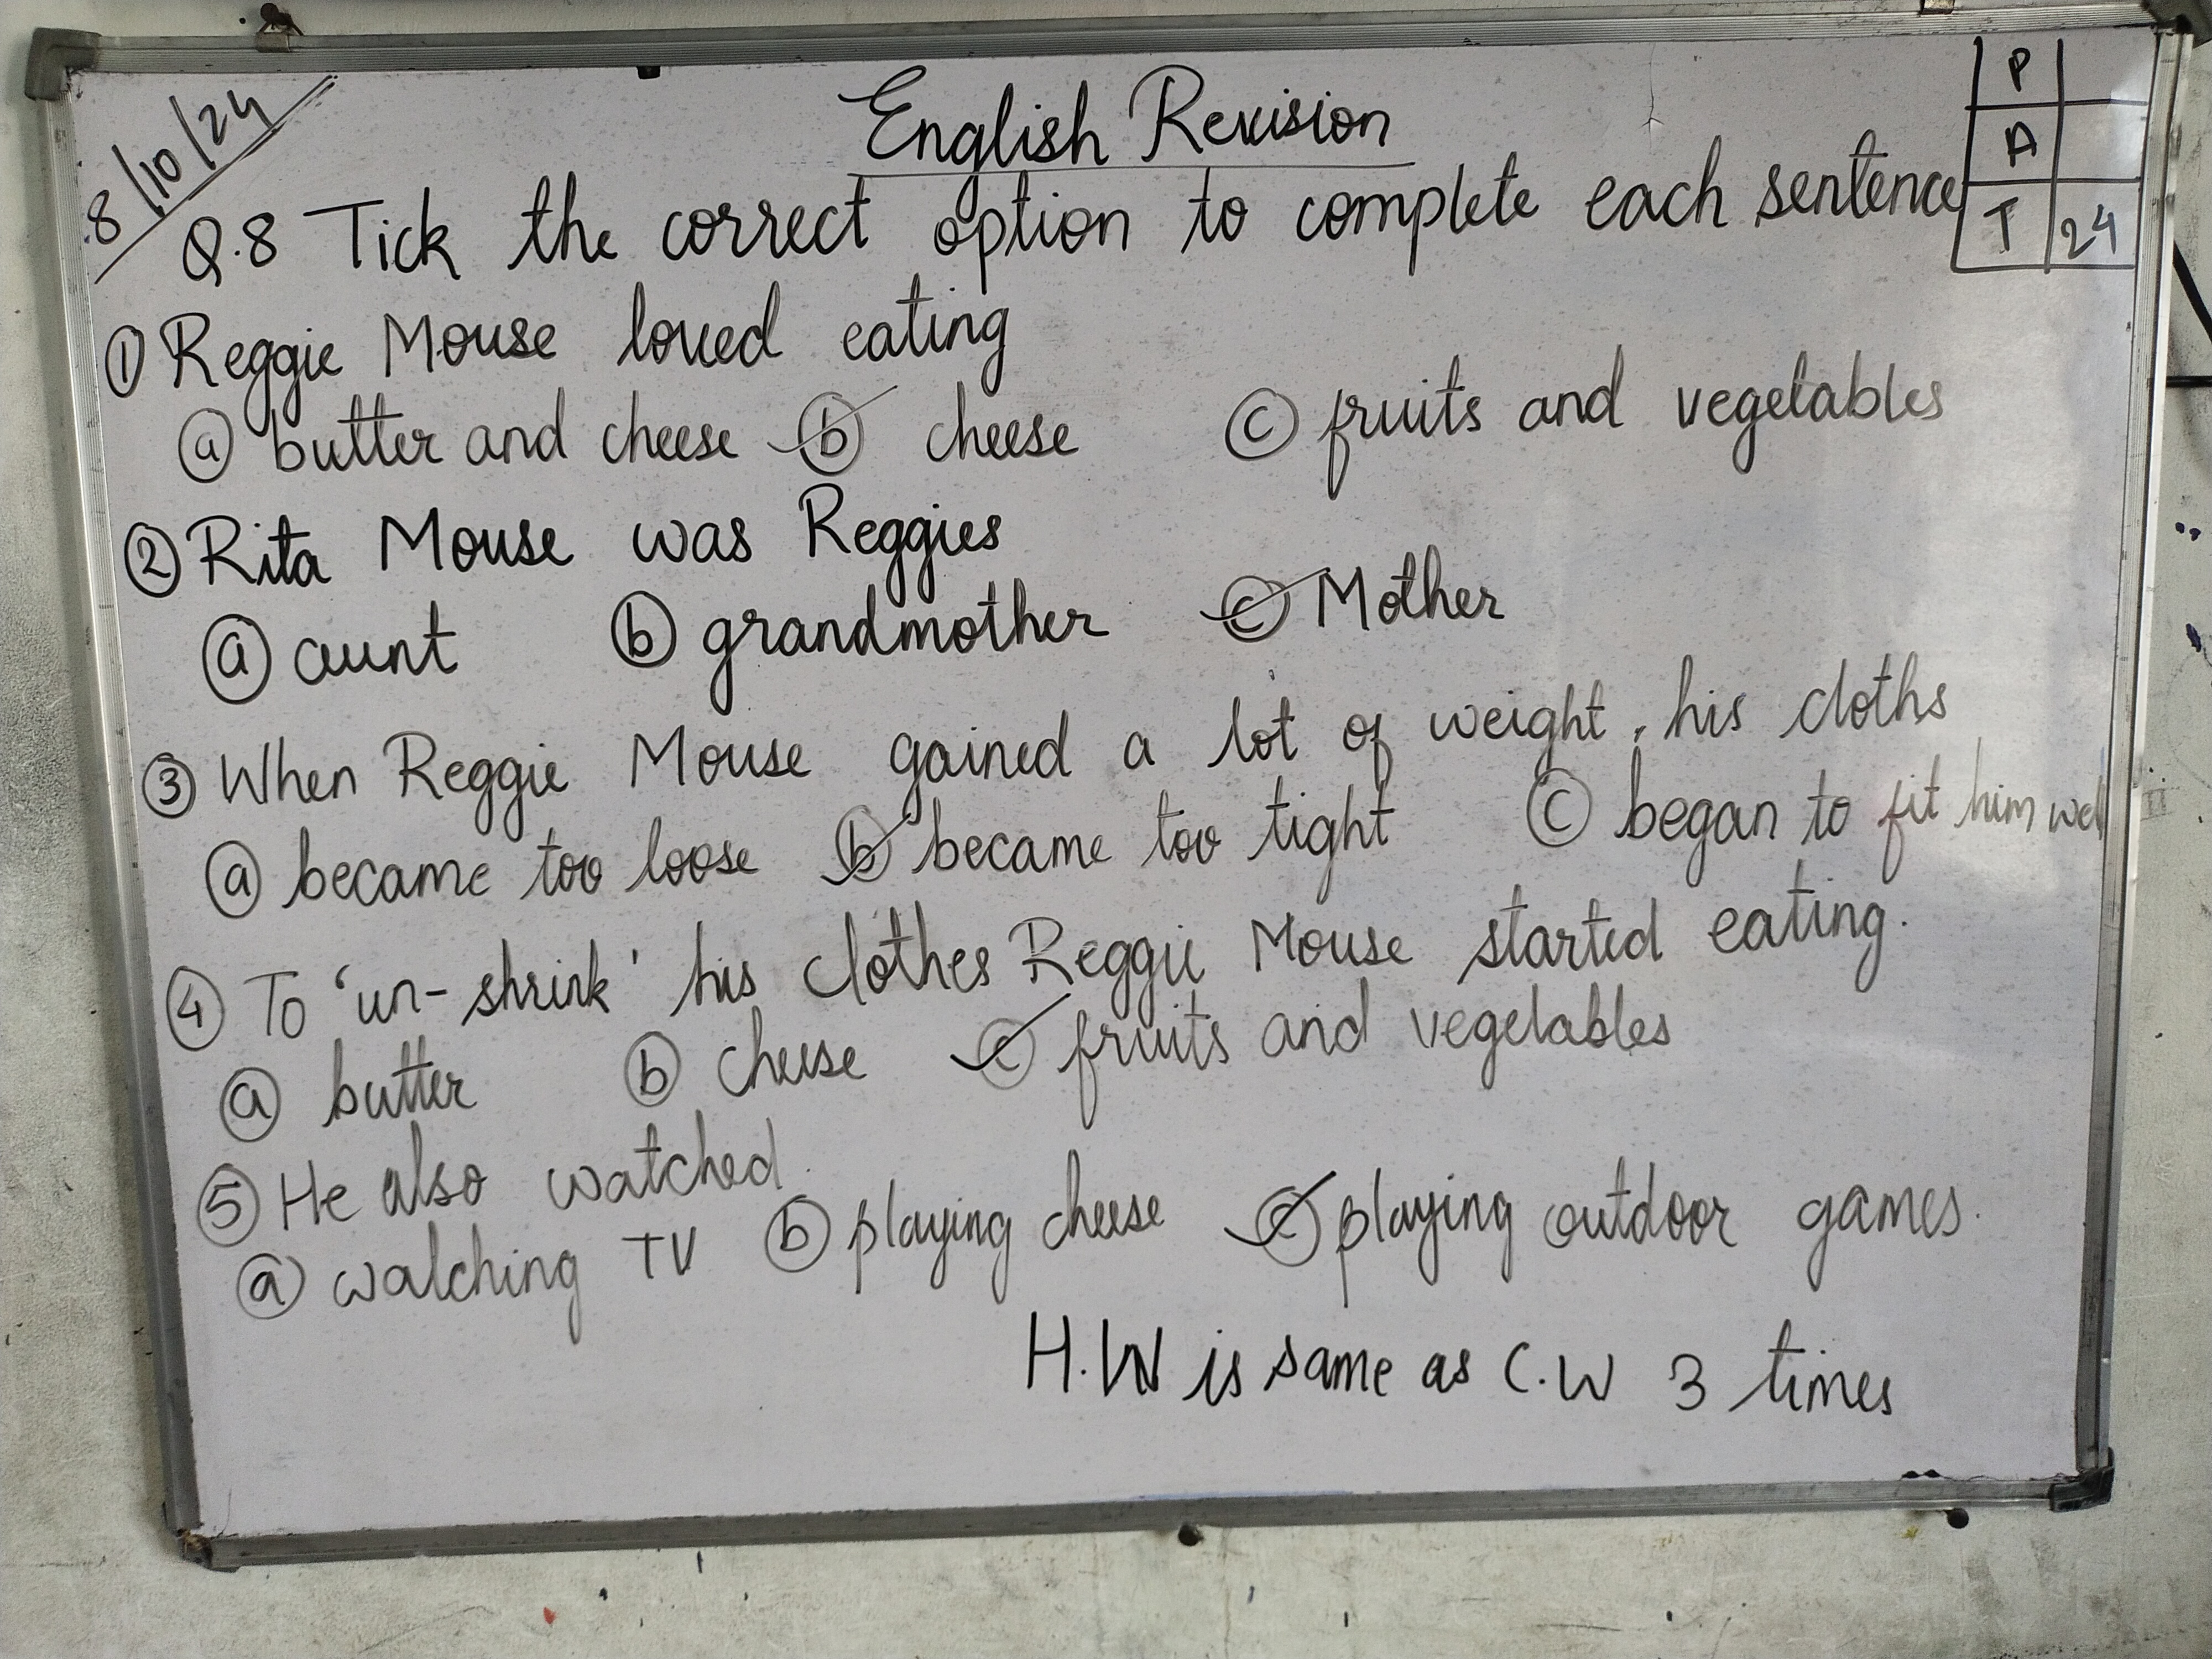 8/10/24
English Revision
P
A
T 24
Q.8 Tick the correct option to complete each sentence
① Reggie Mouse loved eating
ⓐ butter and cheese ⓑ cheese ⓒ fruits and vegetables
② Rita Mouse was Reggies
ⓐ aunt ⓑ grandmother ⓒ Mother
③ When Reggie Mouse gained a lot of weight, his cloths
ⓐ became too loose ⓑ became too tight ⓒ began to fit him well
④ To 'un-shrink' his clothes Reggie Mouse started eating.
ⓐ butter ⓑ cheese ⓒ fruits and vegetables
⑤ He also watched
ⓐ watching TV ⓑ playing cheese ⓒ playing outdoor games.
H.W is same as C.W 3 times